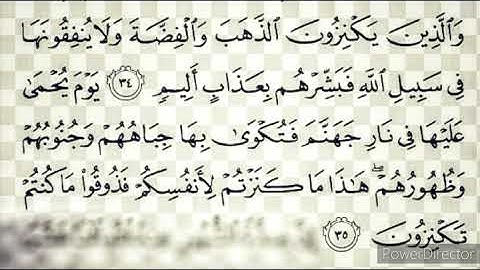 وَٱلَّذِينَ يَكْنِزُونَ ٱلذَّهَبَ وَٱلْفِضَّةَ وَلَا يُنفِقُونَهَا
فِى سَبِيلِ ٱللَّهِ فَبَشِّرْهُم بِعَذَابٍ أَلِيمٍ ٣٤ يَوْمَ يُحْمَىٰ
عَلَيْهَا فِى نَارِ جَهَنَّمَ فَتُكْوَىٰ بِهَا جِبَاهُهُمْ وَجُنُوبُهُمْ
وَظُهُورُهُمْ ۖ هَٰذَا مَا كَنَزْتُمْ لِأَنفُسِكُمْ فَذُوقُوا۟ مَا كُنتُمْ
تَكْنِزُونَ ٣٥
PowerDirector